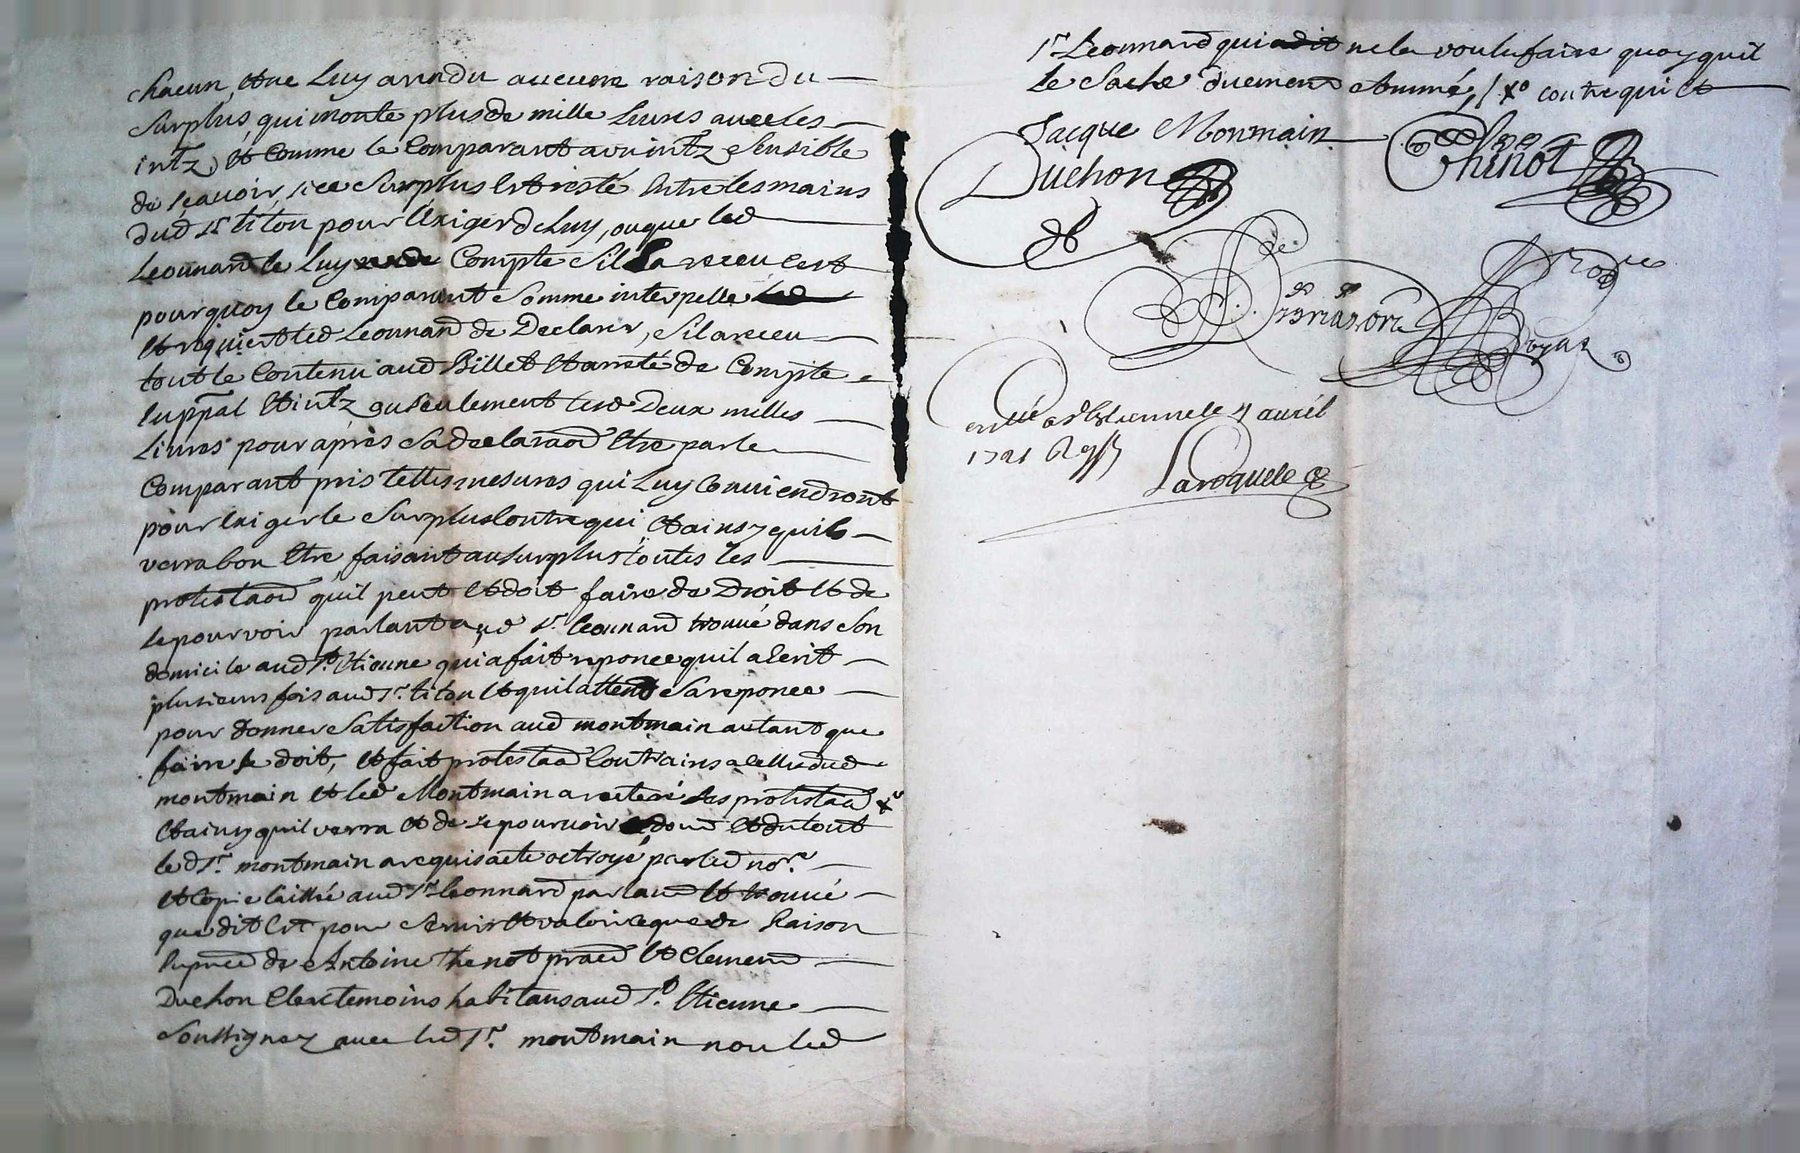 chacun, et ne luy a rendu aucune raison du
surplus, qui monte plus de mille livres avec les
intz, et comme le comparant a un intz sensible
de sçavoir, si ce surplus est resté entre les mains
dud sr titon pour l'exiger de luy, ou que led
Leonnard le luy rende compte sil la receu cest
pourquoy le comparant somme interpelle led
et requiert led Leonnard de declarer, sil a receu
tout le contenu aud Billet et arresté de compte
en ppal et intz ou seulement lesd deux milles
livres pour après sa declaraon être par le
comparant pris telles mesures qui luy conviendront
pour exiger le surplus contre qui et ainsy quil
verra bon être, faisant au surplus toutes les
protestaons quil peut et doit faire de droit et de
se pourvoir parlant aud sr. Leonnard trouvé dans son
domicile aud St. Etienne qui a fait reponce quil a ecrit
plusieurs fois aud sr. titon et quil attent sa reponce
pour donner satisfaction aud montmain autant que
faire se doit, et fait protestaon contraires a celles dud
montmain et led Montmain a reiteré ses protestaons xo
et ainsy quil verra et de se pourvoir dont et du tout
led sr. montmain a requis acte octroyé par led nore.
et copie laissé aud sr Leonnard parlant et trouvé
que dit est pour servir et valoir ce que de raison
en pnce de Antoine Thenot pratien et Clement
Duchon clerc temoins habitans aud St. Etienne
soussignez avec led sr. montmain non led
sr Leonnard qui ne la voulu faire quoy quil
le sache duement sommé, / xo contre qui et
Jacque Monmain
Duchon
Thinot
enllé a St Estienne le 4 avril
1721
Laroquele